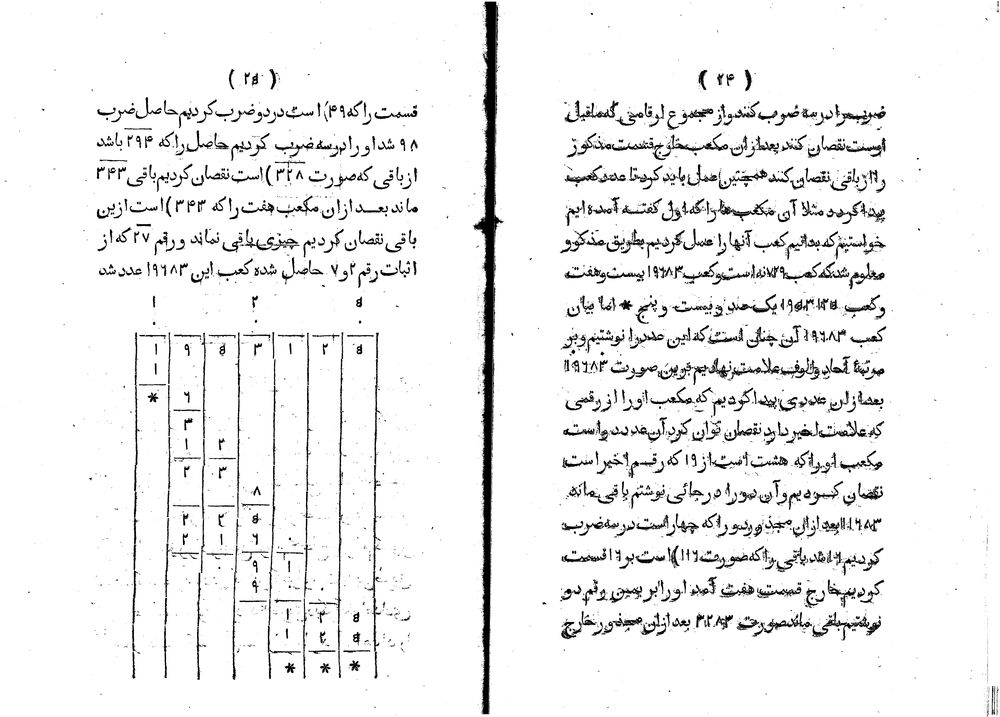 ( ۲۴ )
ضرب را در سه ضرب کنند و از مجموع ارقامی که ماقبل
اوست نقصان کنند بعد از ان مکعب خارج قسمت مذکور
را از باقی نقصان کنند همچنین عمل باید کرد تا عدد کعب
پیدا گردد مثلا آن مکعب ها را که اول گفته آمده ایم
خواستیم که بدانیم کعب آنها را عمل کردیم بطریق مذکور و
معلوم شد که کعب ۷۲۹ نه است و کعب ۱۹۶۸۳ بیست و هفت
و کعب ۱۹۵۳۱۲۵ یک صد و بیست و پنج * اما بیان
کعب ۱۹۶۸۳ آن چنان است که این عدد را نوشتیم و بر
مرتبهٔ آحاد و الوف علامت نهادیم برین صورت ۱۹۶۸۳
بعد از ان عددی پیدا کردیم که مکعب او را از رقمی
که علامت اخیر دارد نقصان توان کرد آن عدد دو است
مکعب او را که هشت است از ۱۹ که رقم اخیر است
نقصان کردیم و آن دو را در جائی نوشتیم باقی مانده
۱۱۶۸۳ بعد از ان مجذور دو را که چهار است در سه ضرب
کردیم ۱۲ شد باقی را که صورت ۱۱۶) است بر ۱۲ قسمت
کردیم خارج قسمت هفت آمد او را بر یمین رقم دو
نوشتیم باقی ماند صورت ۳۲۸۳ بعد از ان مجذور خارج
( ۲۵ )
قسمت را که ۴۹) است در دو ضرب کردیم حاصل ضرب
۹۸ شد او را در سه ضرب کردیم حاصل را که ۲۹۴ باشد
از باقی که صورت ۳۲۸) است نقصان کردیم باقی ۳۴۳
ماند بعد از ان مکعب هفت را که ۳۴۳) است ازین
باقی نقصان کردیم چیزی باقی نماند و رقم ۲۷ که از
اثبات رقم ۲ و ۷ حاصل شده کعب این ۱۹۶۸۳ عدد شد
۱ ۲ ۵
۱ ۹ ۵ ۳ ۱ ۲ ۵
۱
* ۶
۳
۱ ۲
۲ ۳
۸
۲ ۲ ۵
۲ ۱ ۶ ۰
۰ ۹ ۱
۹ ۰ ۰
۱ ۲ ۵
۱ ۲ ۵
* * *